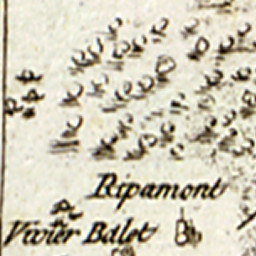 Ripamont
Vivier Balet